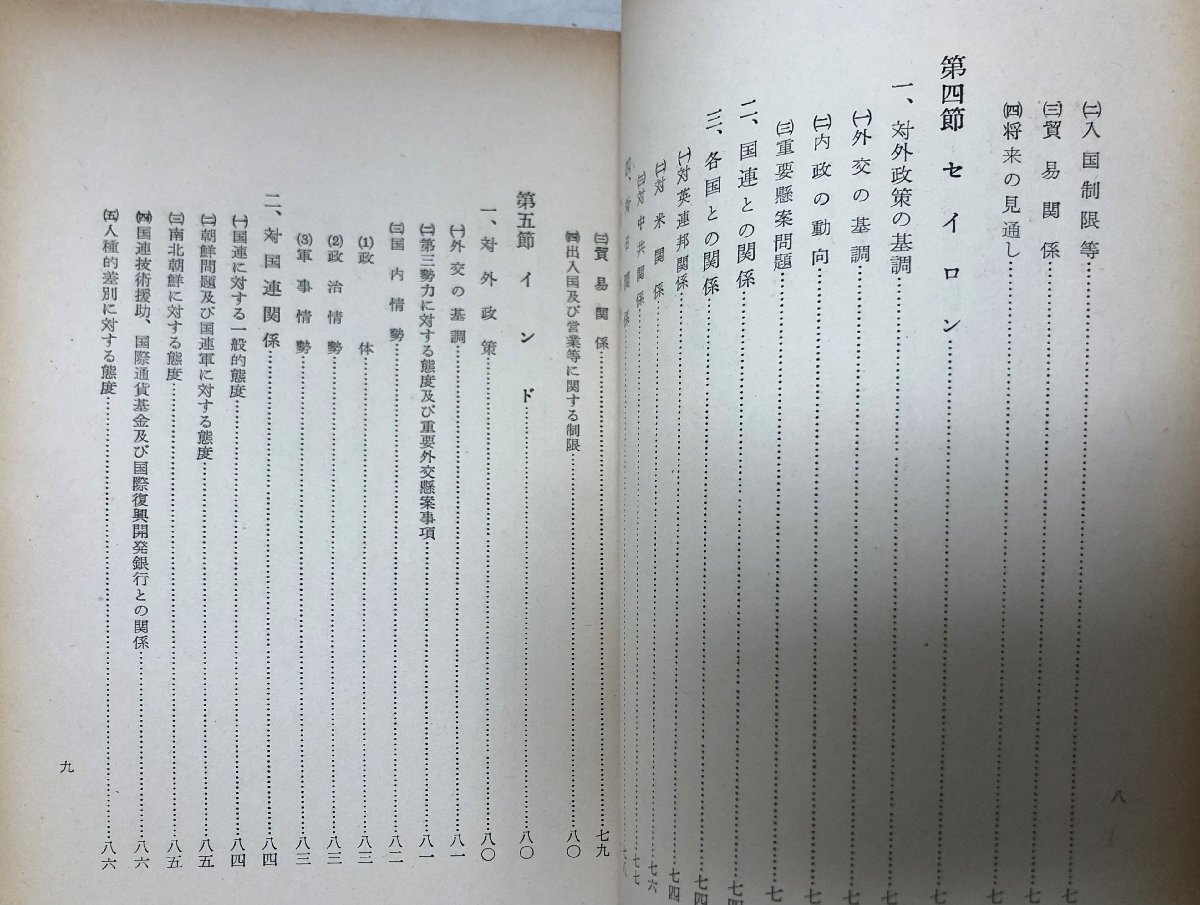 ㈡入国制限等……七
㈢貿易関係……七
㈣将来の見通し……七
第四節 セイロン……七
一、対外政策の基調……七
㈠外交の基調……七
㈡内政の動向……七
㈢重要懸案問題……七
二、国連との関係……七四
三、各国との関係……七四
㈠対英連邦関係……七四
㈡対米関係……七六
㈢対中共関係……七七
八
㈢貿易関係……七九
㈣出入国及び営業等に関する制限……八〇
第五節 インド……八〇
一、対外政策……八〇
㈠外交の基調……八一
㈡第三勢力に対する態度及び重要外交懸案事項……八一
㈢国内情勢……八二
(1)政体……八三
(2)政治情勢……八三
(3)軍事情勢……八三
二、対国連関係……八四
㈠国連に対する一般的態度……八四
㈡朝鮮問題及び国連軍に対する態度……八五
㈢南北朝鮮に対する態度……八五
㈣国連技術援助、国際通貨基金及び国際復興開発銀行との関係……八六
㈤人種的差別に対する態度……八六
九